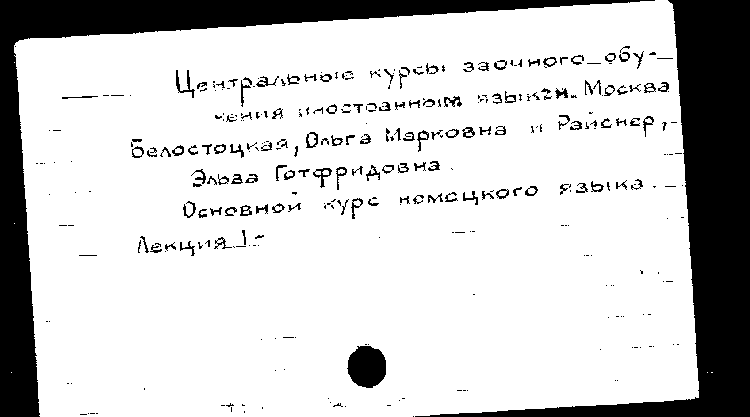 Центральные курсы заочного обу-
чения иностранным языкам. Москва
Белостоцкая, Ольга Марковна и Райснер,
Эльза Готфридовна.
Основной курс немецкого языка.
Лекция 1-